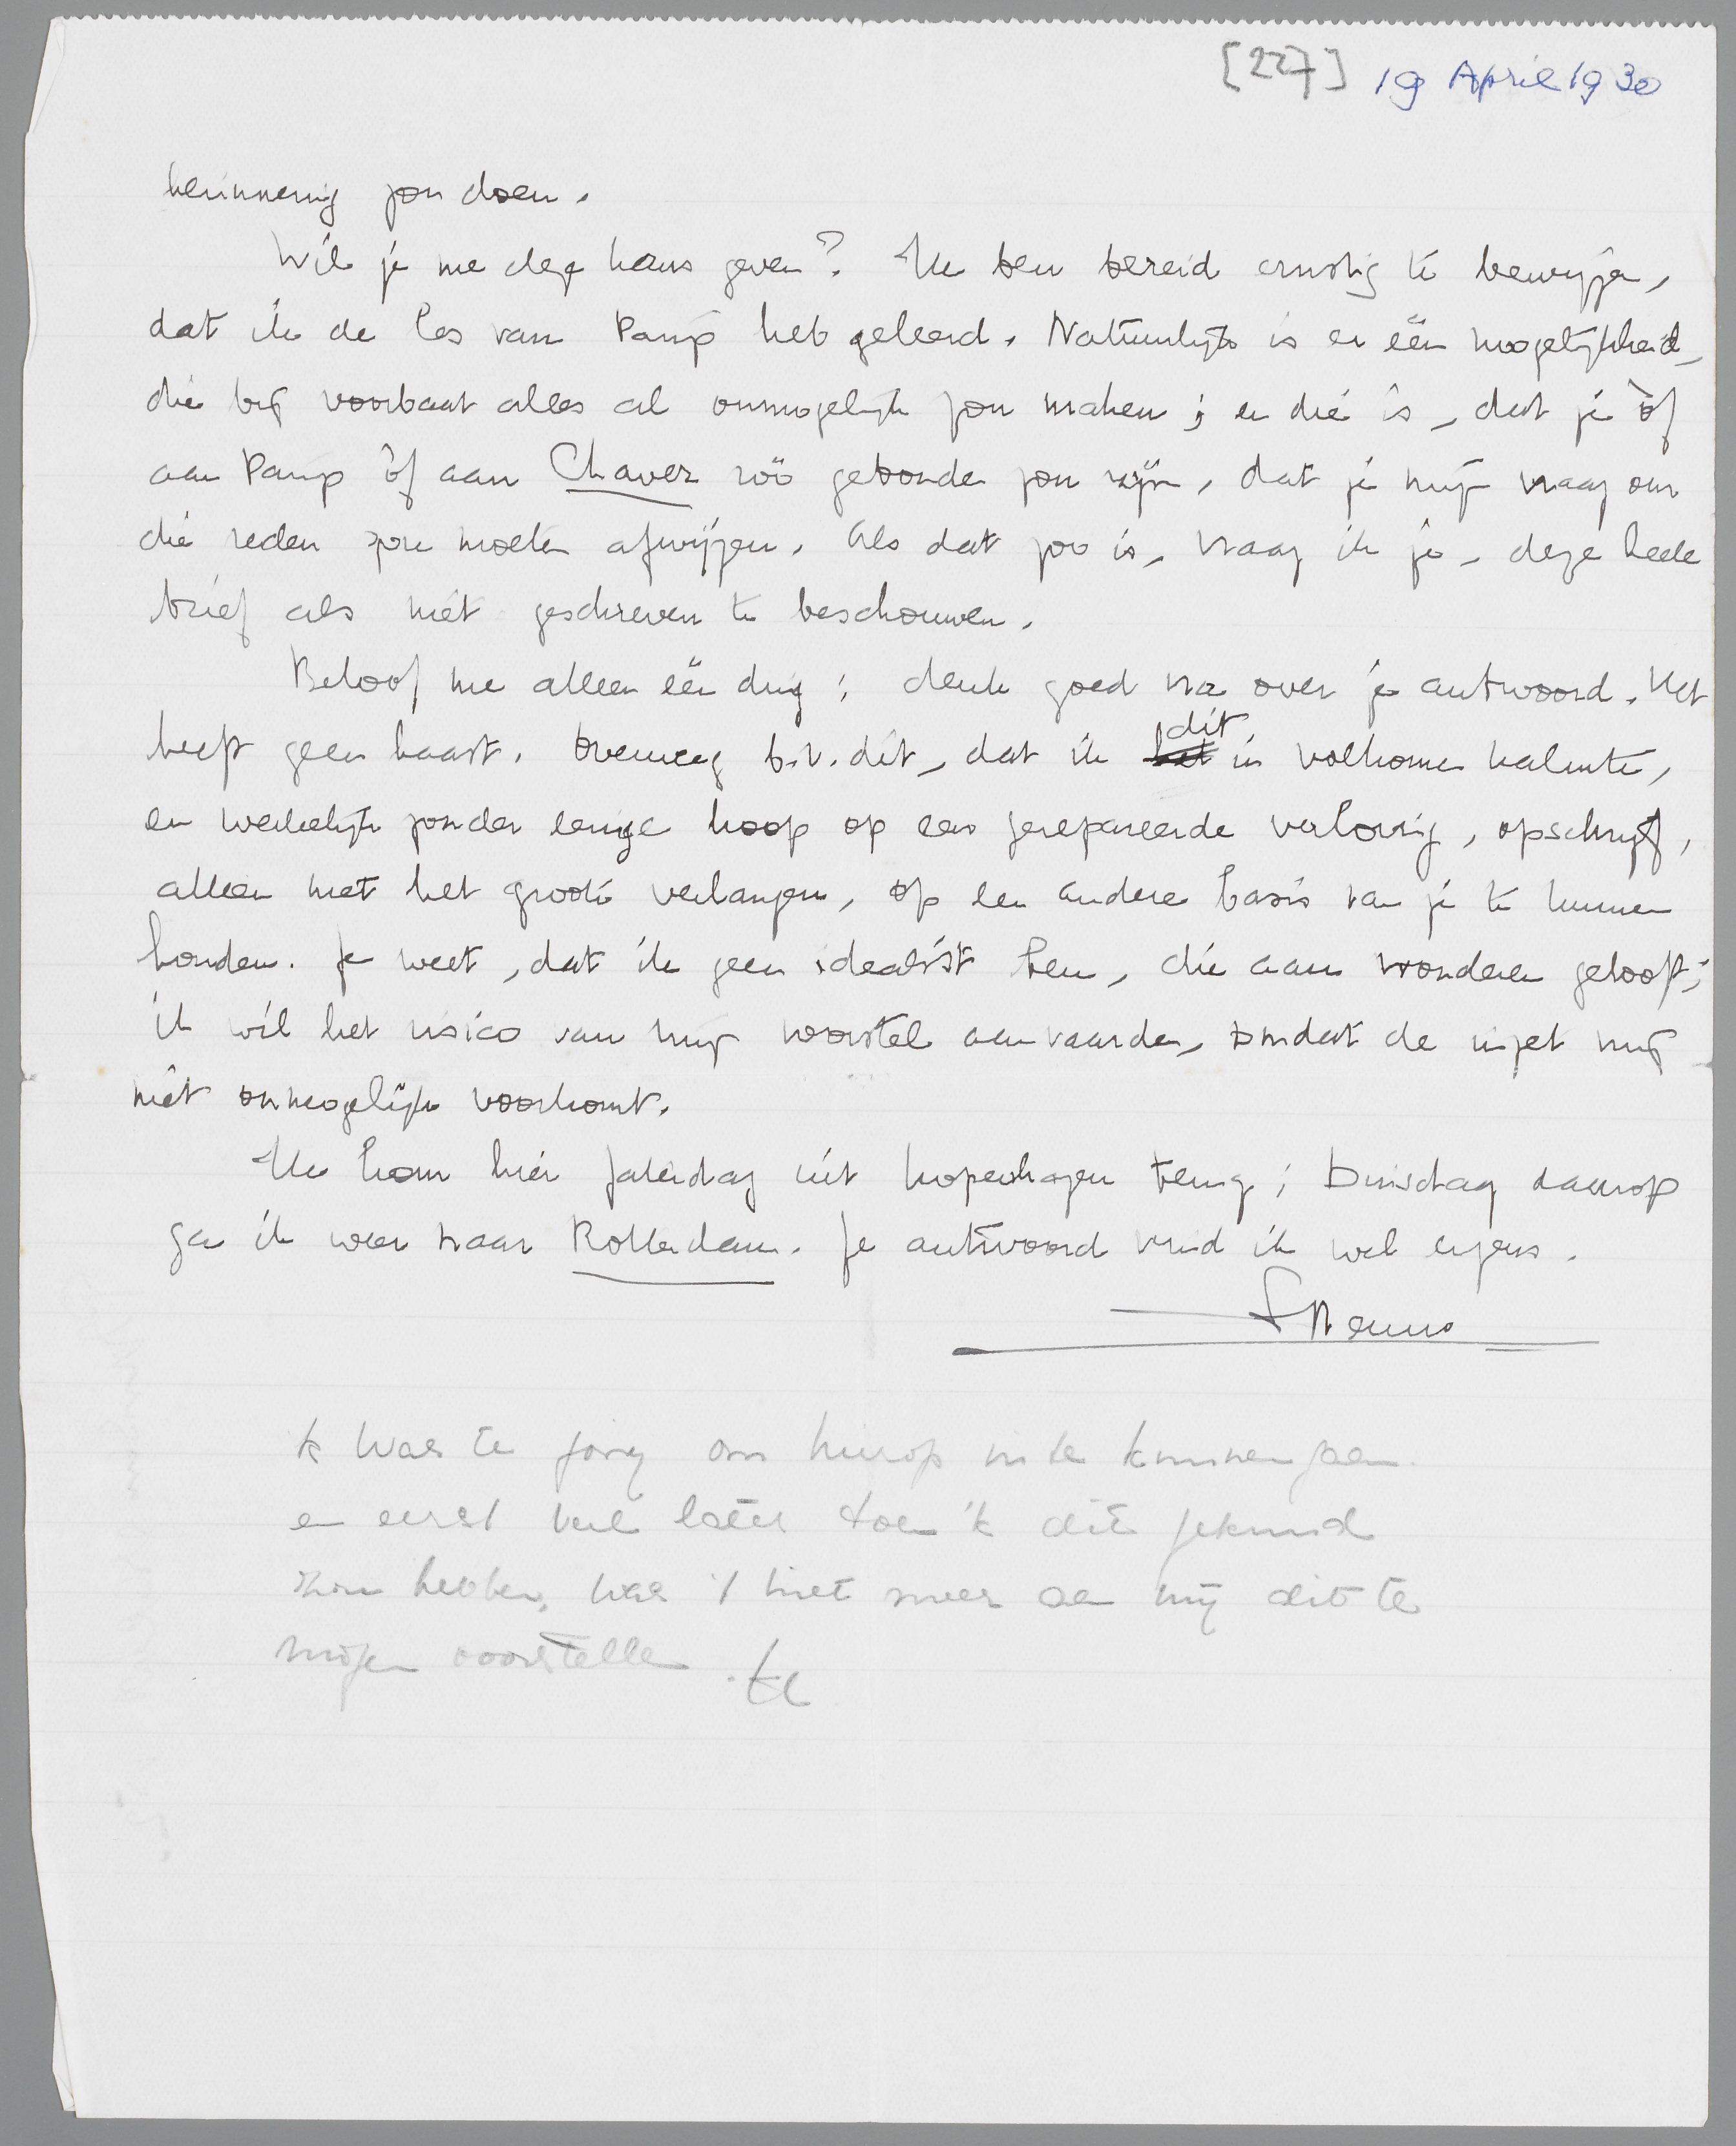 [227] 19 April 1930
herinnering zou doen.
Wil je me deze kans geven? Ik ben bereid ernstig te bewijzen,
dat ik de les van Parijs heb geleerd. Natuurlijk is er één mogelijkheid,
die bij voorbaat alles al onmogelijk zou maken; en die is, dat je òf
aan Parijs òf aan Chavez zóó gebonden zou zijn, dat je mijn vraag om
die reden zou moeten afwijzen. Als dat zoo is, vraag ik je, deze heele
brief als niet geschreven te beschouwen.
Beloof me alleen één ding: denk goed na over je antwoord. Het
heeft geen haast. Overweeg b.v. dit, dat ik dit in volkomen kalmte,
en werkelijk zonder eenige hoop op een gerepareerde verloving, opschrijf,
alleen met het groote verlangen, op een andere basis van je te kunnen
houden. Je weet, dat ik geen idealist ben, die aan wonderen gelooft;
ik wil het risico van mijn voorstel aanvaarden, omdat de inzet mij
niet onmogelijk voorkomt.
Ik kom hier Zaterdag uit Kopenhagen terug; Dinsdag daarop
ga ik weer naar Rotterdam. Je antwoord vind ik wel ergens.
Menno
Ik was te jong om hierop in te kunnen gaan
en eerst veel later toen ik dit gekund
zou hebben, was 't niet meer aan mij dit te
mogen voorstellen.